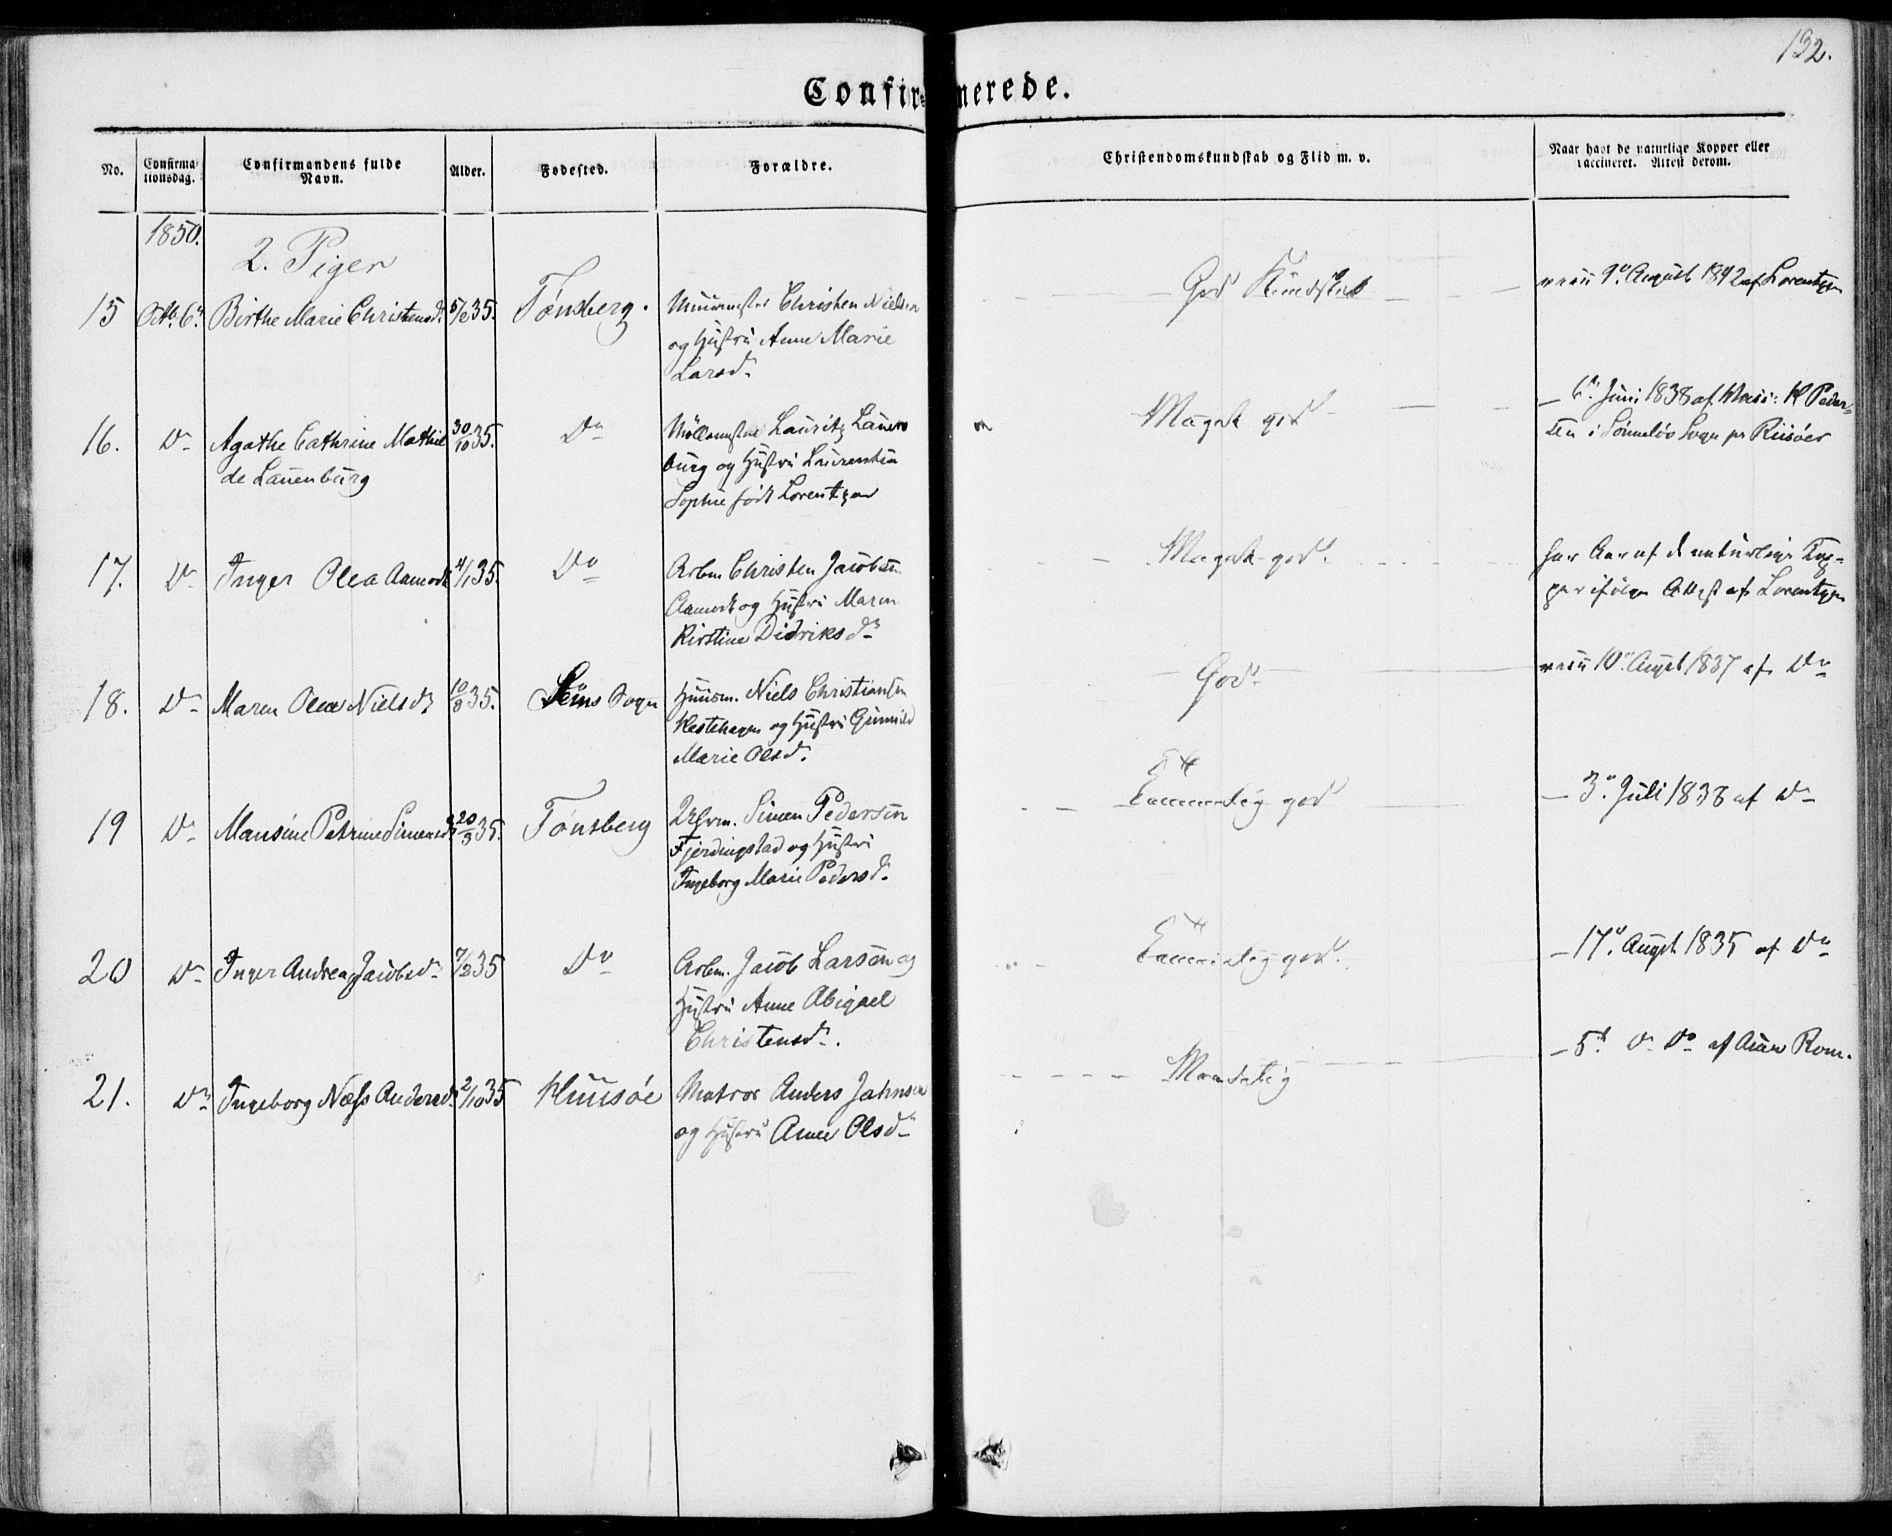 132.
Confirmerede.
No.
Confirma-
tionsdag.
Confirmandens fulde
Navn.
Alder.
Fødested.
Forældre.
Christendomskundskab og Flid m. v.
Naar havt de naturlige Kopper eller
vaccineret. Attest derom.
1850.
2. Piger
15 Octb. 6te Birthe Marie Christensd. 5/2 35. Tønsberg. Muurmester Christen Nielsen
og Hustru Anne Marie
Larsd.
God Kundskab
vacc 9de August 1842 af Lorentzen
16. Do Agathe Cathrine Mathil
de Lauenburg
30/10 35. Do
Møllemester Lauritz Lauen
burg og Hustru Laurentia
Sophie født Lorentzen
Meget god
6te Juni 1838 af K Peder-
sen i Søndeløv Sogn pr Riisøer
17. Do Inger Olea Aamodt 4/1 35. Do
Arbm Christen Jacobsen
Aamodt og Hustru Maren
Kirstine Didriksd.
Meget god.
har Aar af de naturlige Kop-
per ifølge Attest af Lorentzen
18. Do Maren Olea Nielsd. 10/3 35. Sems Sogn
Huusm. Niels Christiansen
Hestehagen og Hustru Gunnild
Marie Olsd.
God
vacc 10de August 1837 af Do
19 Do Mansine Petrine Simensd. 20/3 35. Tønsberg
Simen Pedersen
Fjerdingstad og Hustru
Ingeborg Marie Pedersd.
Temmelig god
3de Juli 1838 af Do
20 Do Inger Andrea Jacobsd. 7/2 35 Do
Arbm. Jacob Larsen og
Hustru Anne Abigael
Christensd.
Temmelig god.
17de August 1835 af Do
21. Do Ingeborg Næss Andersd. 2/10 35 Huusøe
Matros Anders Jahnsen
og Hustru Anne Olsd.
Maadelig
5te Do Do af